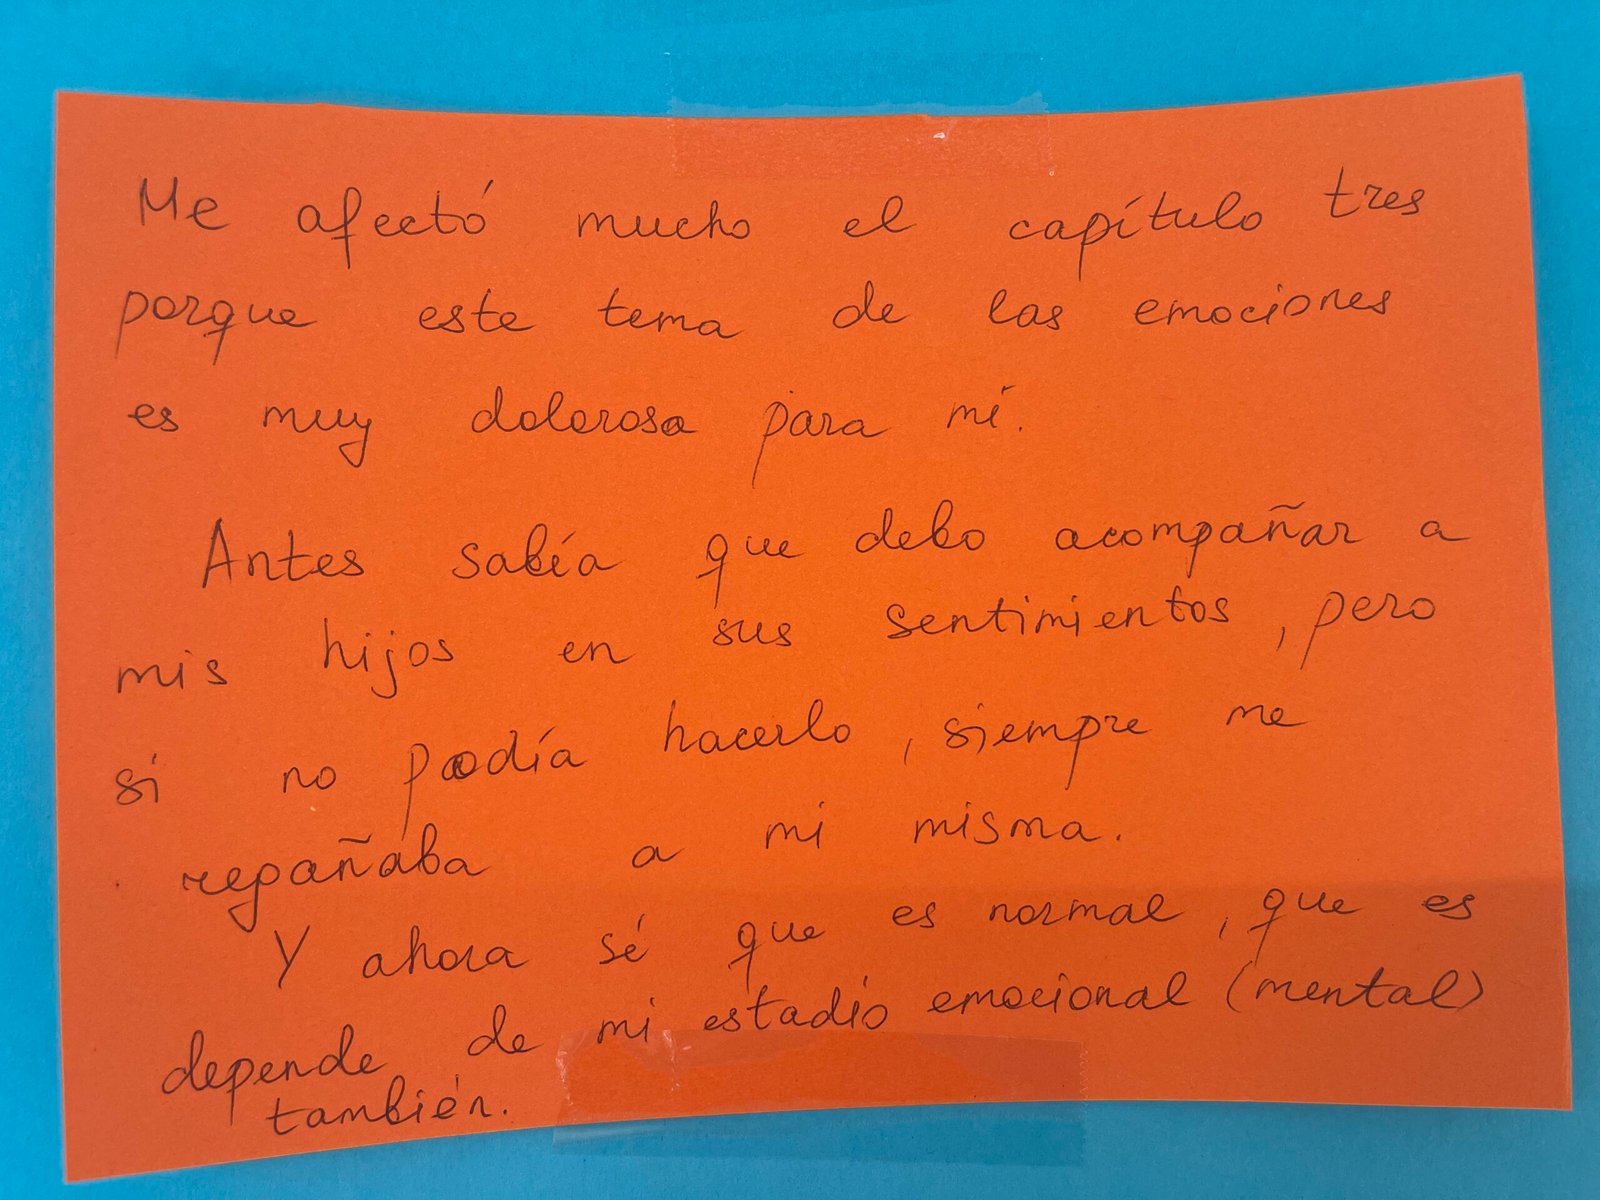 Me afectó mucho el capítulo tres
porque este tema de las emociones
es muy dolorosa para mí.
Antes sabía que debo acompañar a
mis hijos en sus sentimientos, pero
si no podía hacerlo, siempre me
regañaba a mi misma.
Y ahora sé que es normal, que es
depende de mi estadio emocional (mental)
también.